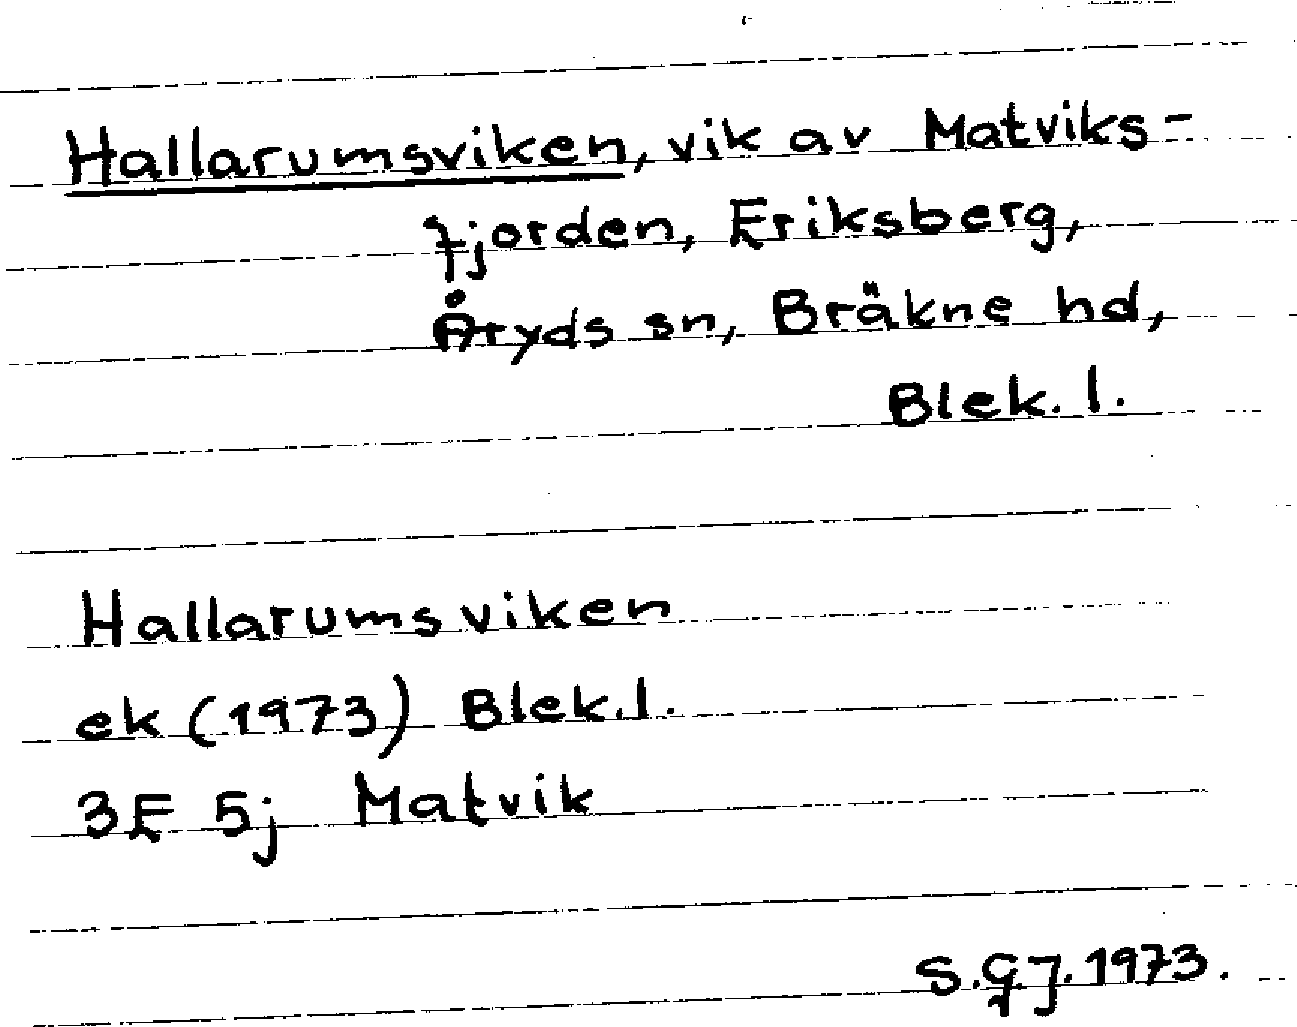 Hallarumsviken, vik av Matviks-
fjorden, Eriksberg,
Åryds sn, Bräkne hd,
Blek. l.
Hallarumsviken
ek (1973) Blek. l.
3E 5j Matvik
S.G.J. 1973.